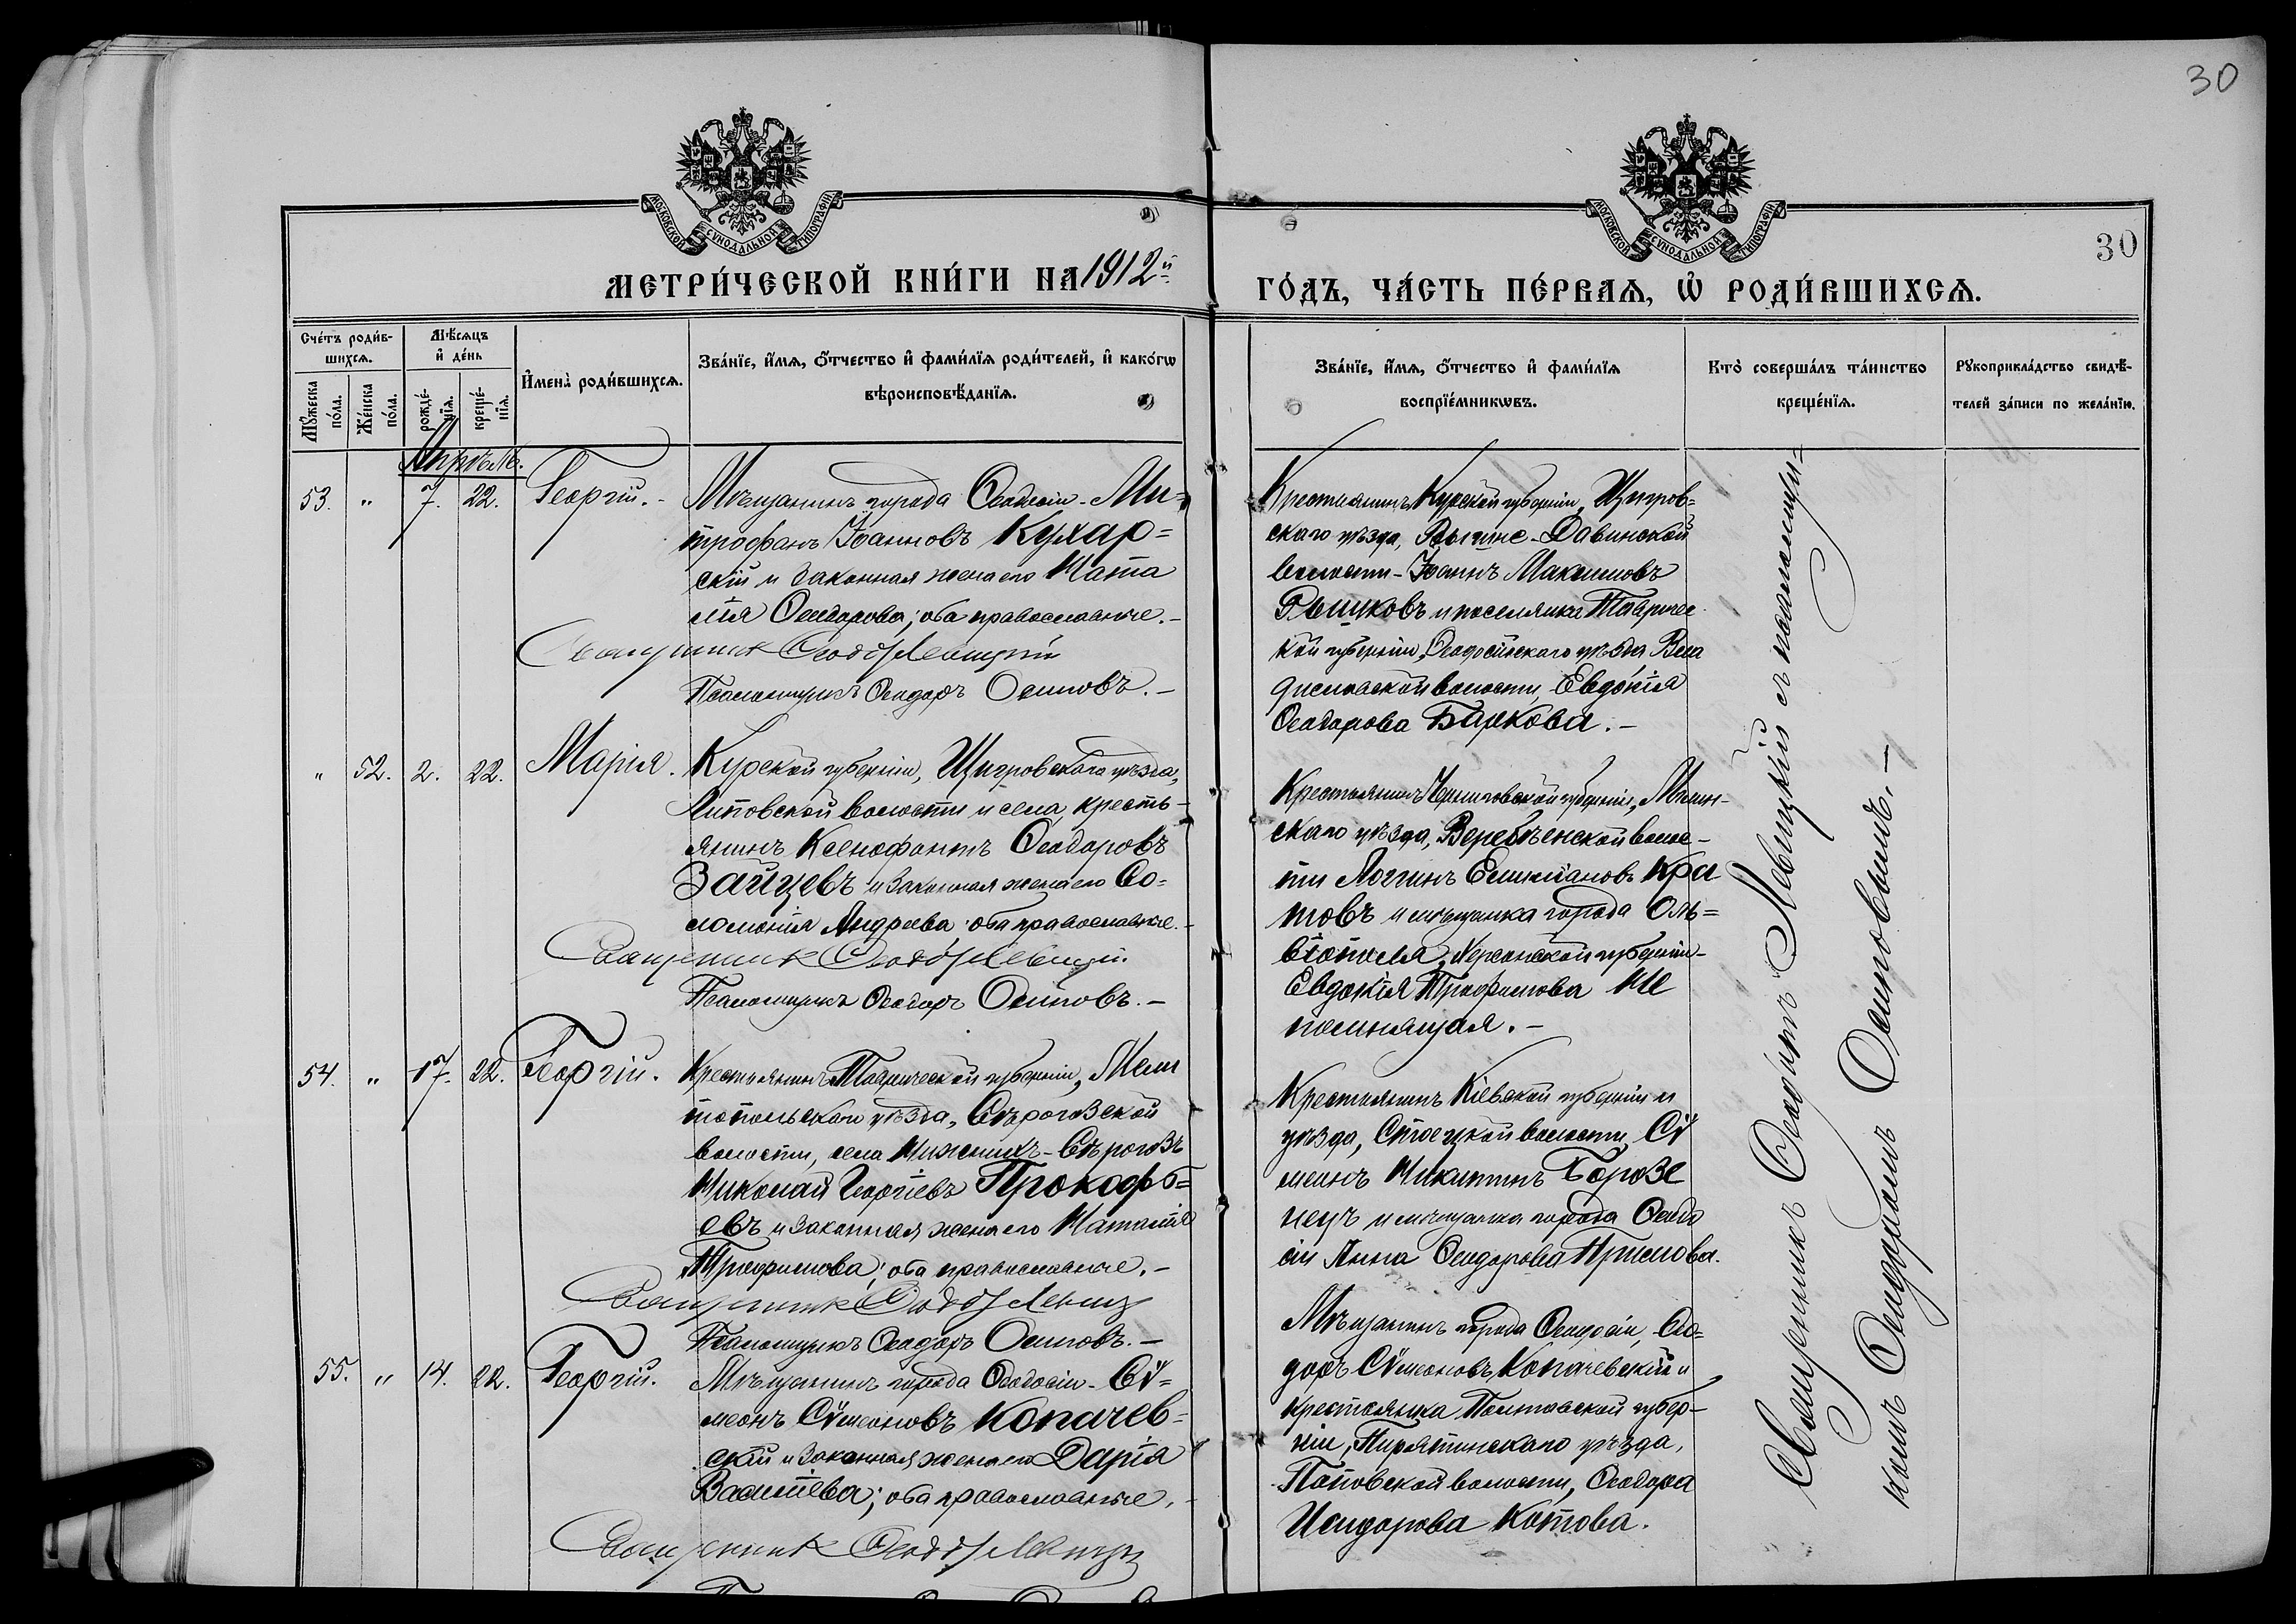 30
МОСКОВСКОЙ СУНОДАЛЬНОЙ ТИПОГРАФІИ
МОСКОВСКОЙ СУНОДАЛЬНОЙ ТИПОГРАФІИ
30
МЕТРИ́ЧЕСКОЙ КНИ́ГИ НА 1912й
ГО́ДЪ, ЧА́СТЬ ПЕ́РВАѦ, Ѡ҆ РОДИ́ВШИХСѦ.
Сче́тъ роди́в-
шихсѧ.
Мꙋ́жеска по́ла.
Же́нска по́ла.
Мѣ́сѧцъ
и҆ де́нь
рожде́-
нїѧ.
креще́-
нїѧ.
И҆мена̀ роди́вшихсѧ.
Зва́нїе, и҆́мѧ, ѻ҆́тчество и҆ фами́лїѧ роди́телей, и҆ како́гѡ
вѣроисповѣ́данїѧ.
Зва́нїе, и҆́мѧ, ѻ҆́тчество и҆ фами́лїѧ
воспрїе́мникѡвъ.
Кто̀ соверша́лъ та́инство
креще́нїѧ.
Рꙋкоприкла́дство свидѣ́-
телей за́писи по жела́нїю.
Апрѣль.
53. " 7. 22. Георгій.
Мѣщанинъ города Ѳеодосіи - Ми-
трофанъ Іоанновъ Кухар=
скій и законная жена его Ната
лія Ѳеодорова; оба православные.-
Священникъ Ѳеодотъ Левицкій
Псаломщикъ Ѳеодоръ Осиповъ.-
Крестьянинъ Курской губерніи, Щигров=
скаго уѣзда, волости - Іоаннъ Максимовъ
Рышковъ и поселянка Тавричес
кой губерніи, Ѳеодосійскаго уѣзда Вла
диславской волости, Евдокія
Ѳеодорова Баркова.-
" 52. 2. 22. Марія.
Курской губерніи, Щигровскаго уѣзда,
Липовской волости и села, кресть-
янинъ Ксенофонтъ Ѳеодоровъ
Зайцевъ и законная жена его Со=
ломонія Андреева; оба православные.-
Священникъ Ѳеодотъ Левицкій
Псаломщикъ Ѳеодоръ Осиповъ.-
Крестьянинъ Черниговской губерніи, Мглин-
скаго уѣзда, волос-
ти Логгинъ Емиліановъ Кра
товъ и мѣщанка города Оль=
віополя, Херсонской губерніи-
Евдокія Трофимова Не
помнящая.-
54. " 17. 22. Георгій.
Крестьянинъ Таврической губерніи, Мели
топольскаго уѣзда, Сѣрогозской
волости, села Нижнихъ-Сѣрогозъ
Николай Георгіевъ Прокофь=
евъ и законная жена его Наталія
Трофимова; оба православные.-
Священникъ Ѳеодотъ Левицкій
Псаломщикъ Ѳеодоръ Осиповъ.-
Крестьянинъ Кіевской губерніи и
уѣзда, волости Сѵ
меонъ Никитинъ Борозе
нецъ и мѣщанка города Ѳеодо
сіи Анна Ѳеодорова
55. " 14. 22. Георгій.
Мѣщанинъ города Ѳеодосіи - Сѵ=
меонъ Сѵмеоновъ Копачев-
скій и законная жена его Дарія
Васильева; оба православные.
Священникъ Ѳеодотъ Левицкій
Мѣщанинъ города Ѳеодосіи, Ѳео=
доръ Сѵмеоновъ Копачевскій и
крестьянка Полтавской губер-
ніи, Пирятинскаго уѣзда,
Поповской волости, Ѳеодора
Исидорова Котова.
Священникъ Ѳеодотъ Левицкій съ псаломщи-
комъ Ѳеодоромъ Осиповымъ.-